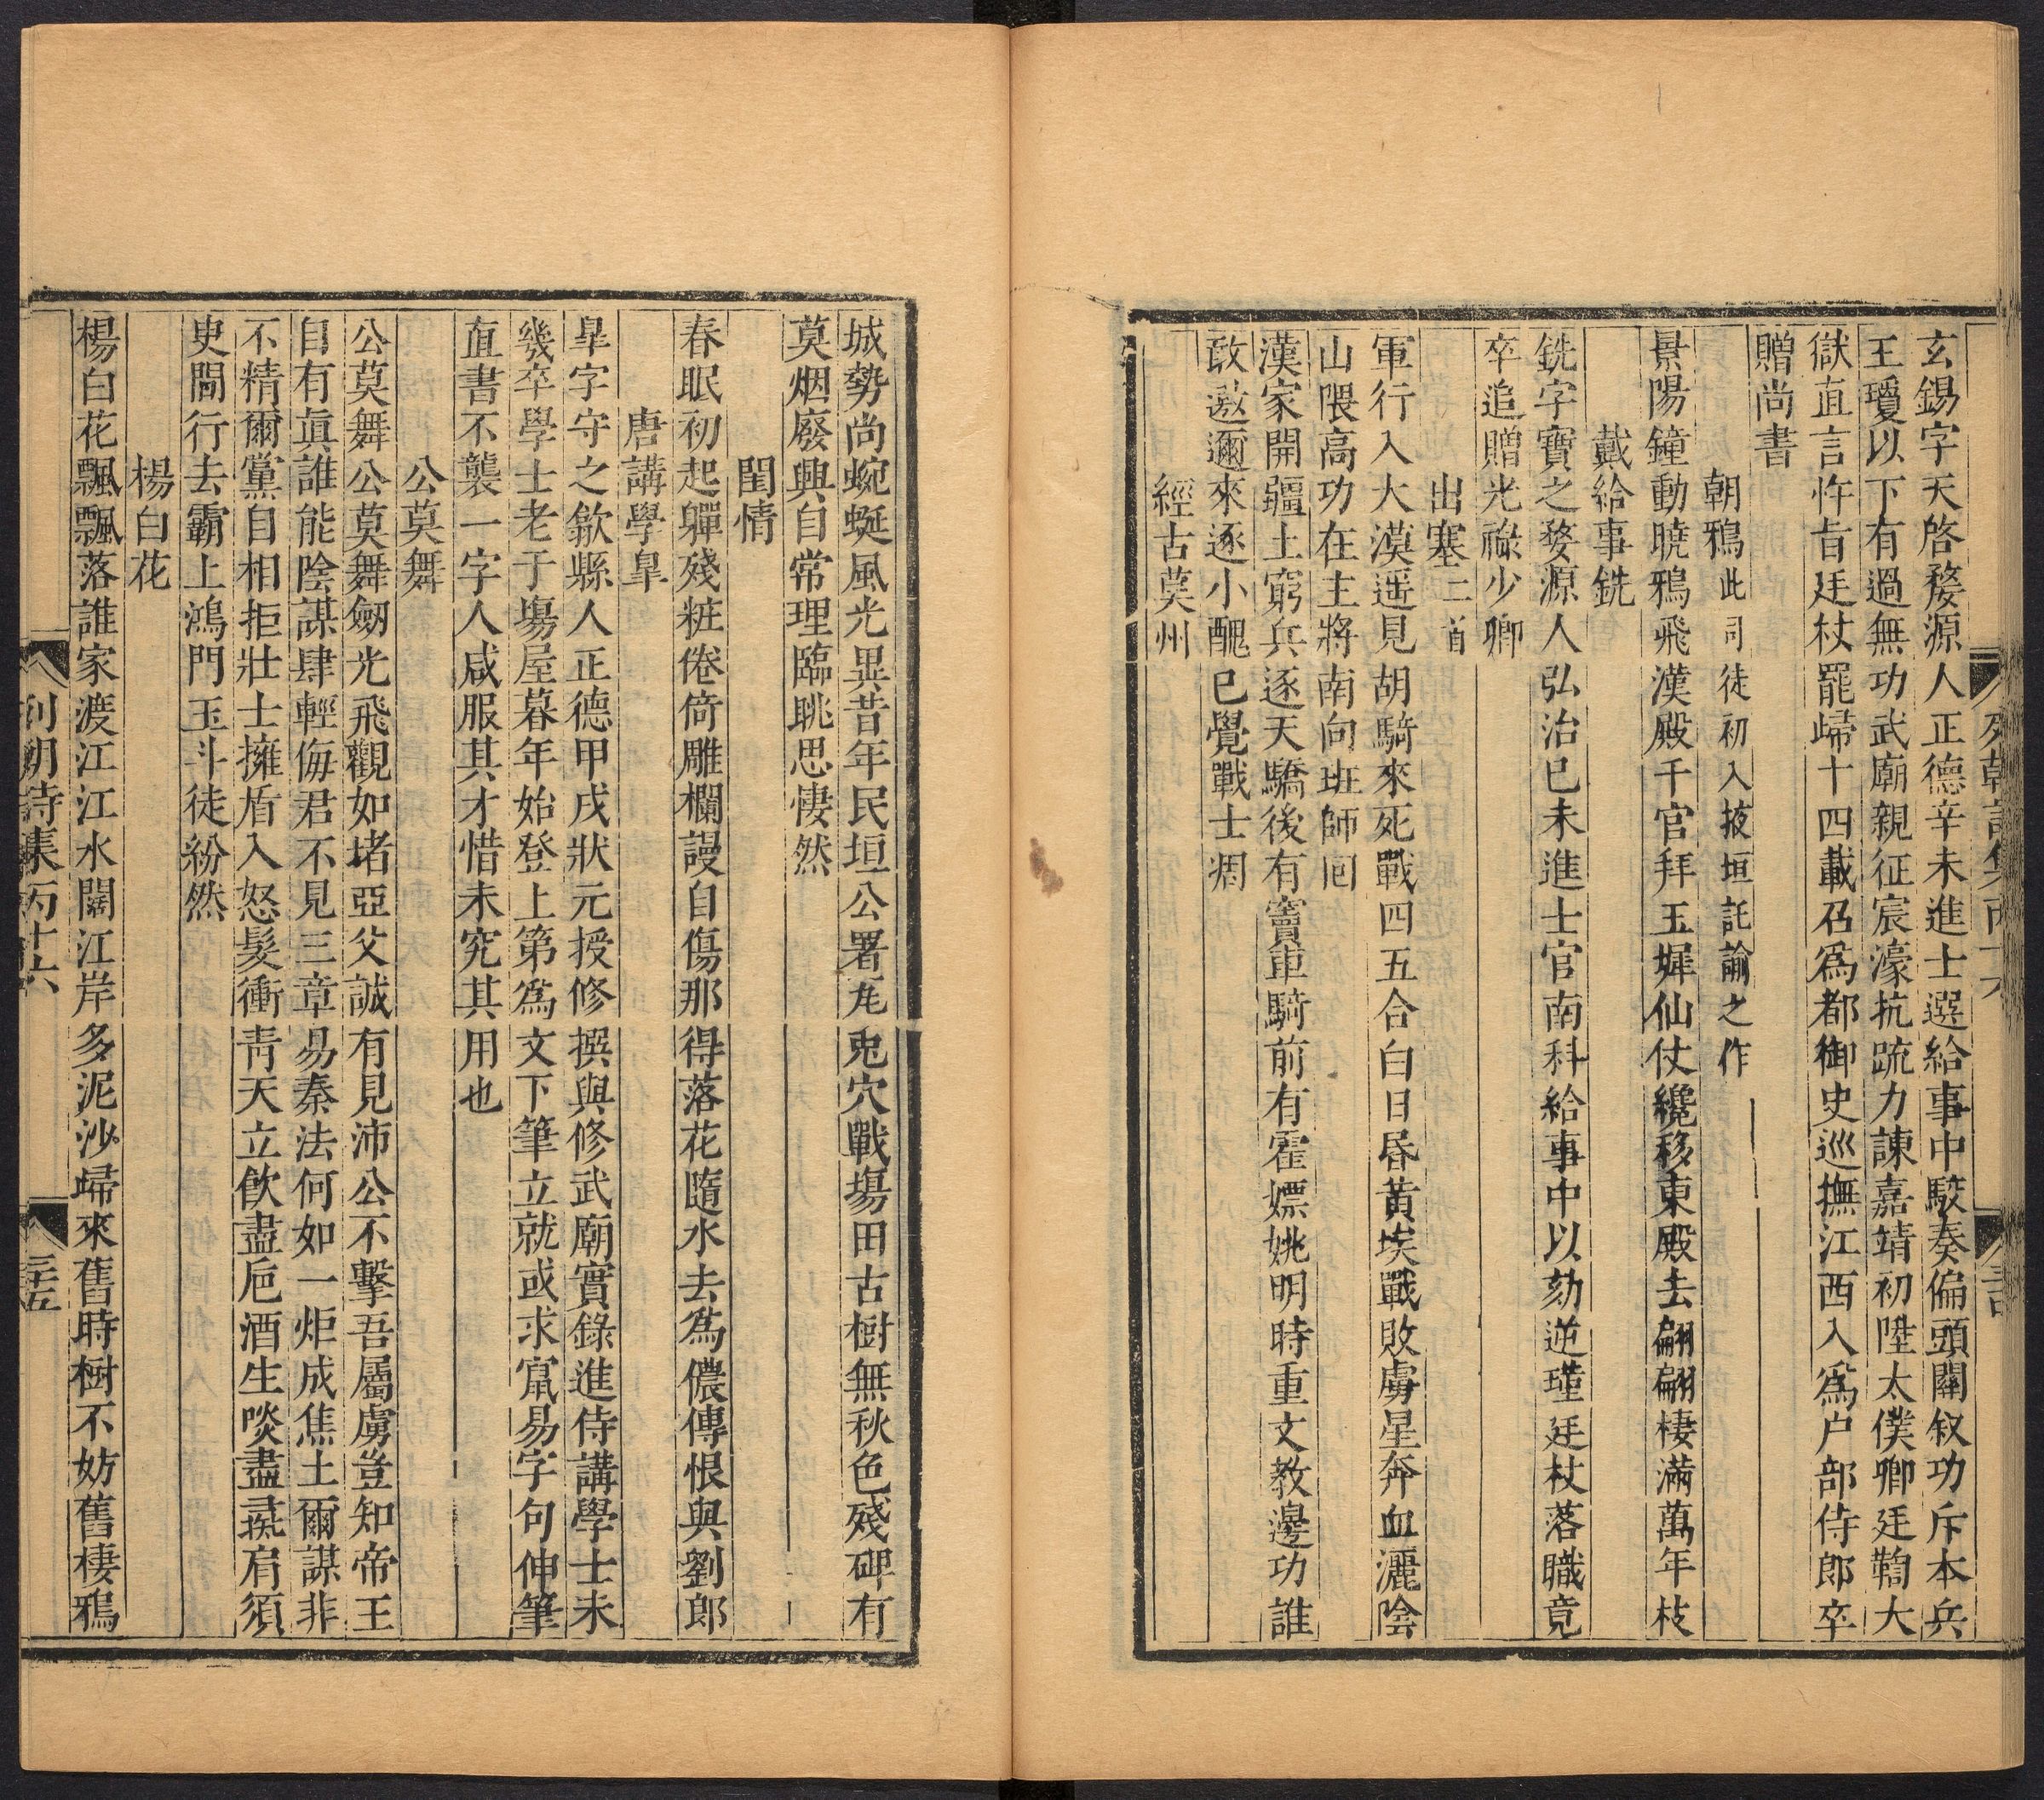 列朝詩集丙十六
玄錫字天啓婺源人正德辛未進士選給事中駁奏偏頭關叙功斥本兵
王瓊以下有過無功武廟親征宸濠抗疏力諫嘉靖初陞太僕卿廷鞫大
獄直言忤旨廷杖罷歸十四載召爲都御史巡撫江西入爲户部侍郎卒
贈尚書
朝鴉此司徒初入掖垣託諭之作
景陽鐘動曉鴉飛漢殿千官拜玉墀仙仗纔移東殿去翩翩棲滿萬年枝
戴給事銑
銑字寶之婺源人弘治己未進士官南科給事中以劾逆瑾廷杖落職竟
卒追贈光祿少卿
出塞二首
軍行入大漠遥見胡騎來死戰四五合白日昏黃埃戰敗虜星奔血灑陰
山隈高功在主將南向班師囘
漢家開疆土窮兵逐天驕後有竇車騎前有霍嫖姚明時重文教邊功誰
敢邀邇來逐小醜已覺戰士凋
經古莫州
城勢尚蜿蜒風光異昔年民垣公署瓦兎穴戰塲田古樹無秋色殘碑有
莫烟廢興自常理臨眺思悽然
閨情
春眠初起嚲殘粧倦倚雕欄謾自傷那得落花隨水去爲儂傳恨與劉郎
唐講學臯
臯字守之歙縣人正德甲戌狀元授修撰與修武廟實錄進侍講學士未
幾卒學士老于塲屋暮年始登上第爲文下筆立就或求竄易字句伸筆
直書不襲一字人咸服其才惜未究其用也
公莫舞
公莫舞公莫舞劒光飛觀如堵亞父誠有見沛公不擊吾屬虜豈知帝王
自有眞誰能陰謀肆輕侮君不見三章易秦法何如一炬成焦土爾謀非
不精爾黨自相拒壯士擁盾入怒髮衝靑天立飮盡巵酒生啖盡彘肩須
臾間行去霸上鴻門玉斗徒紛然
楊白花
楊白花飄飄落誰家渡江江水闊江岸多泥沙歸來舊時樹不妨舊棲鴉
列朝詩集丙十六
三十五